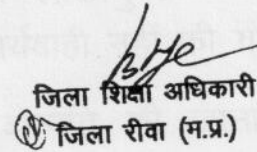 जिला शिक्षा अधिकारी
जिला रीवा (म.प्र.)